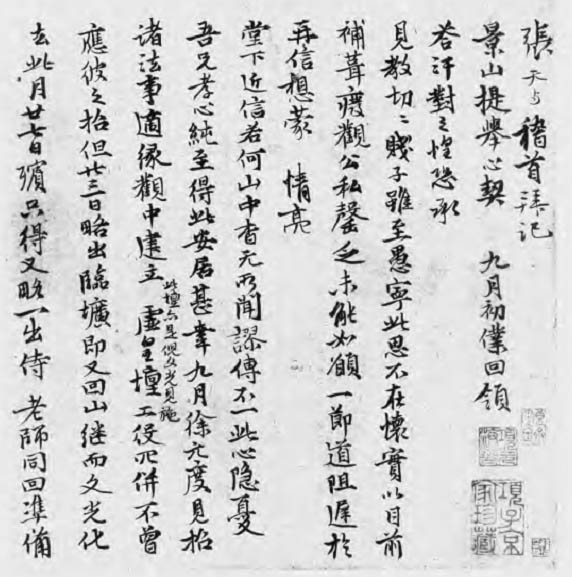 張天雨稽首拜記
景山提舉心契 九月初僕回領
答汗對之惶恐承
見教切〻賤子雖至愚寧此思不在懷實以目前
補葺廢觀公私罄乏未能如願一節道阻遲於
再信想蒙 情亮
堂下近信若何山中杳无所聞謬傳不一此心隐憂
吾兄孝心純至得此安居甚幸九月徐元度見招
諸法事適緣觀中建立 虛皇壇工役
此壇
文光見施
不曾
應彼之招但廿三日略出臨壙即又回山継而文光化
去此月廿七日殯只得又略一出侍 老師同回準備
項子京
家珍藏